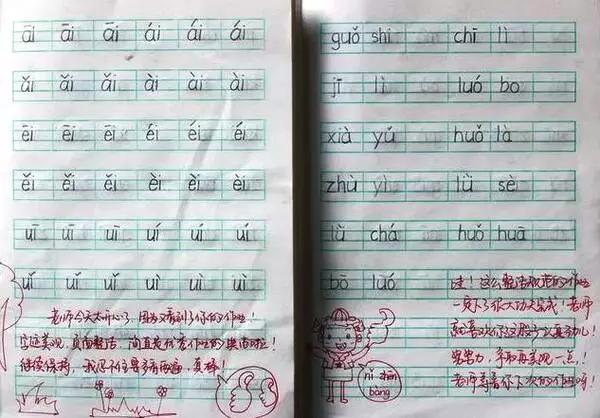 āi āi āi ái ái ái
ǎi ǎi ǎi ài ài ài
ēi ēi ēi éi éi éi
ěi ěi ěi èi èi èi
uī uī uī uí uí uí
uǐ uǐ uǐ uì uì uì
老师今天太开心了,因为又看到了你的作业!
字迹美观,页面整洁 简直是优秀作业的典范啦!
继续保持,我忍不住要多看两遍,真棒!
guǒ shi chī lì
jī lì luó bo
xià yǔ huǒ là
zhù yì lǜ sè
lǜ chá huǒ huā
bō luó
哇!这么整洁规范的作业
一定下了很大功夫完成!老师
就喜欢你这股子认真劲儿!
努力,争取再美观一点!
老师等着你下次的作业呀!
nǐ zhēn
bàng